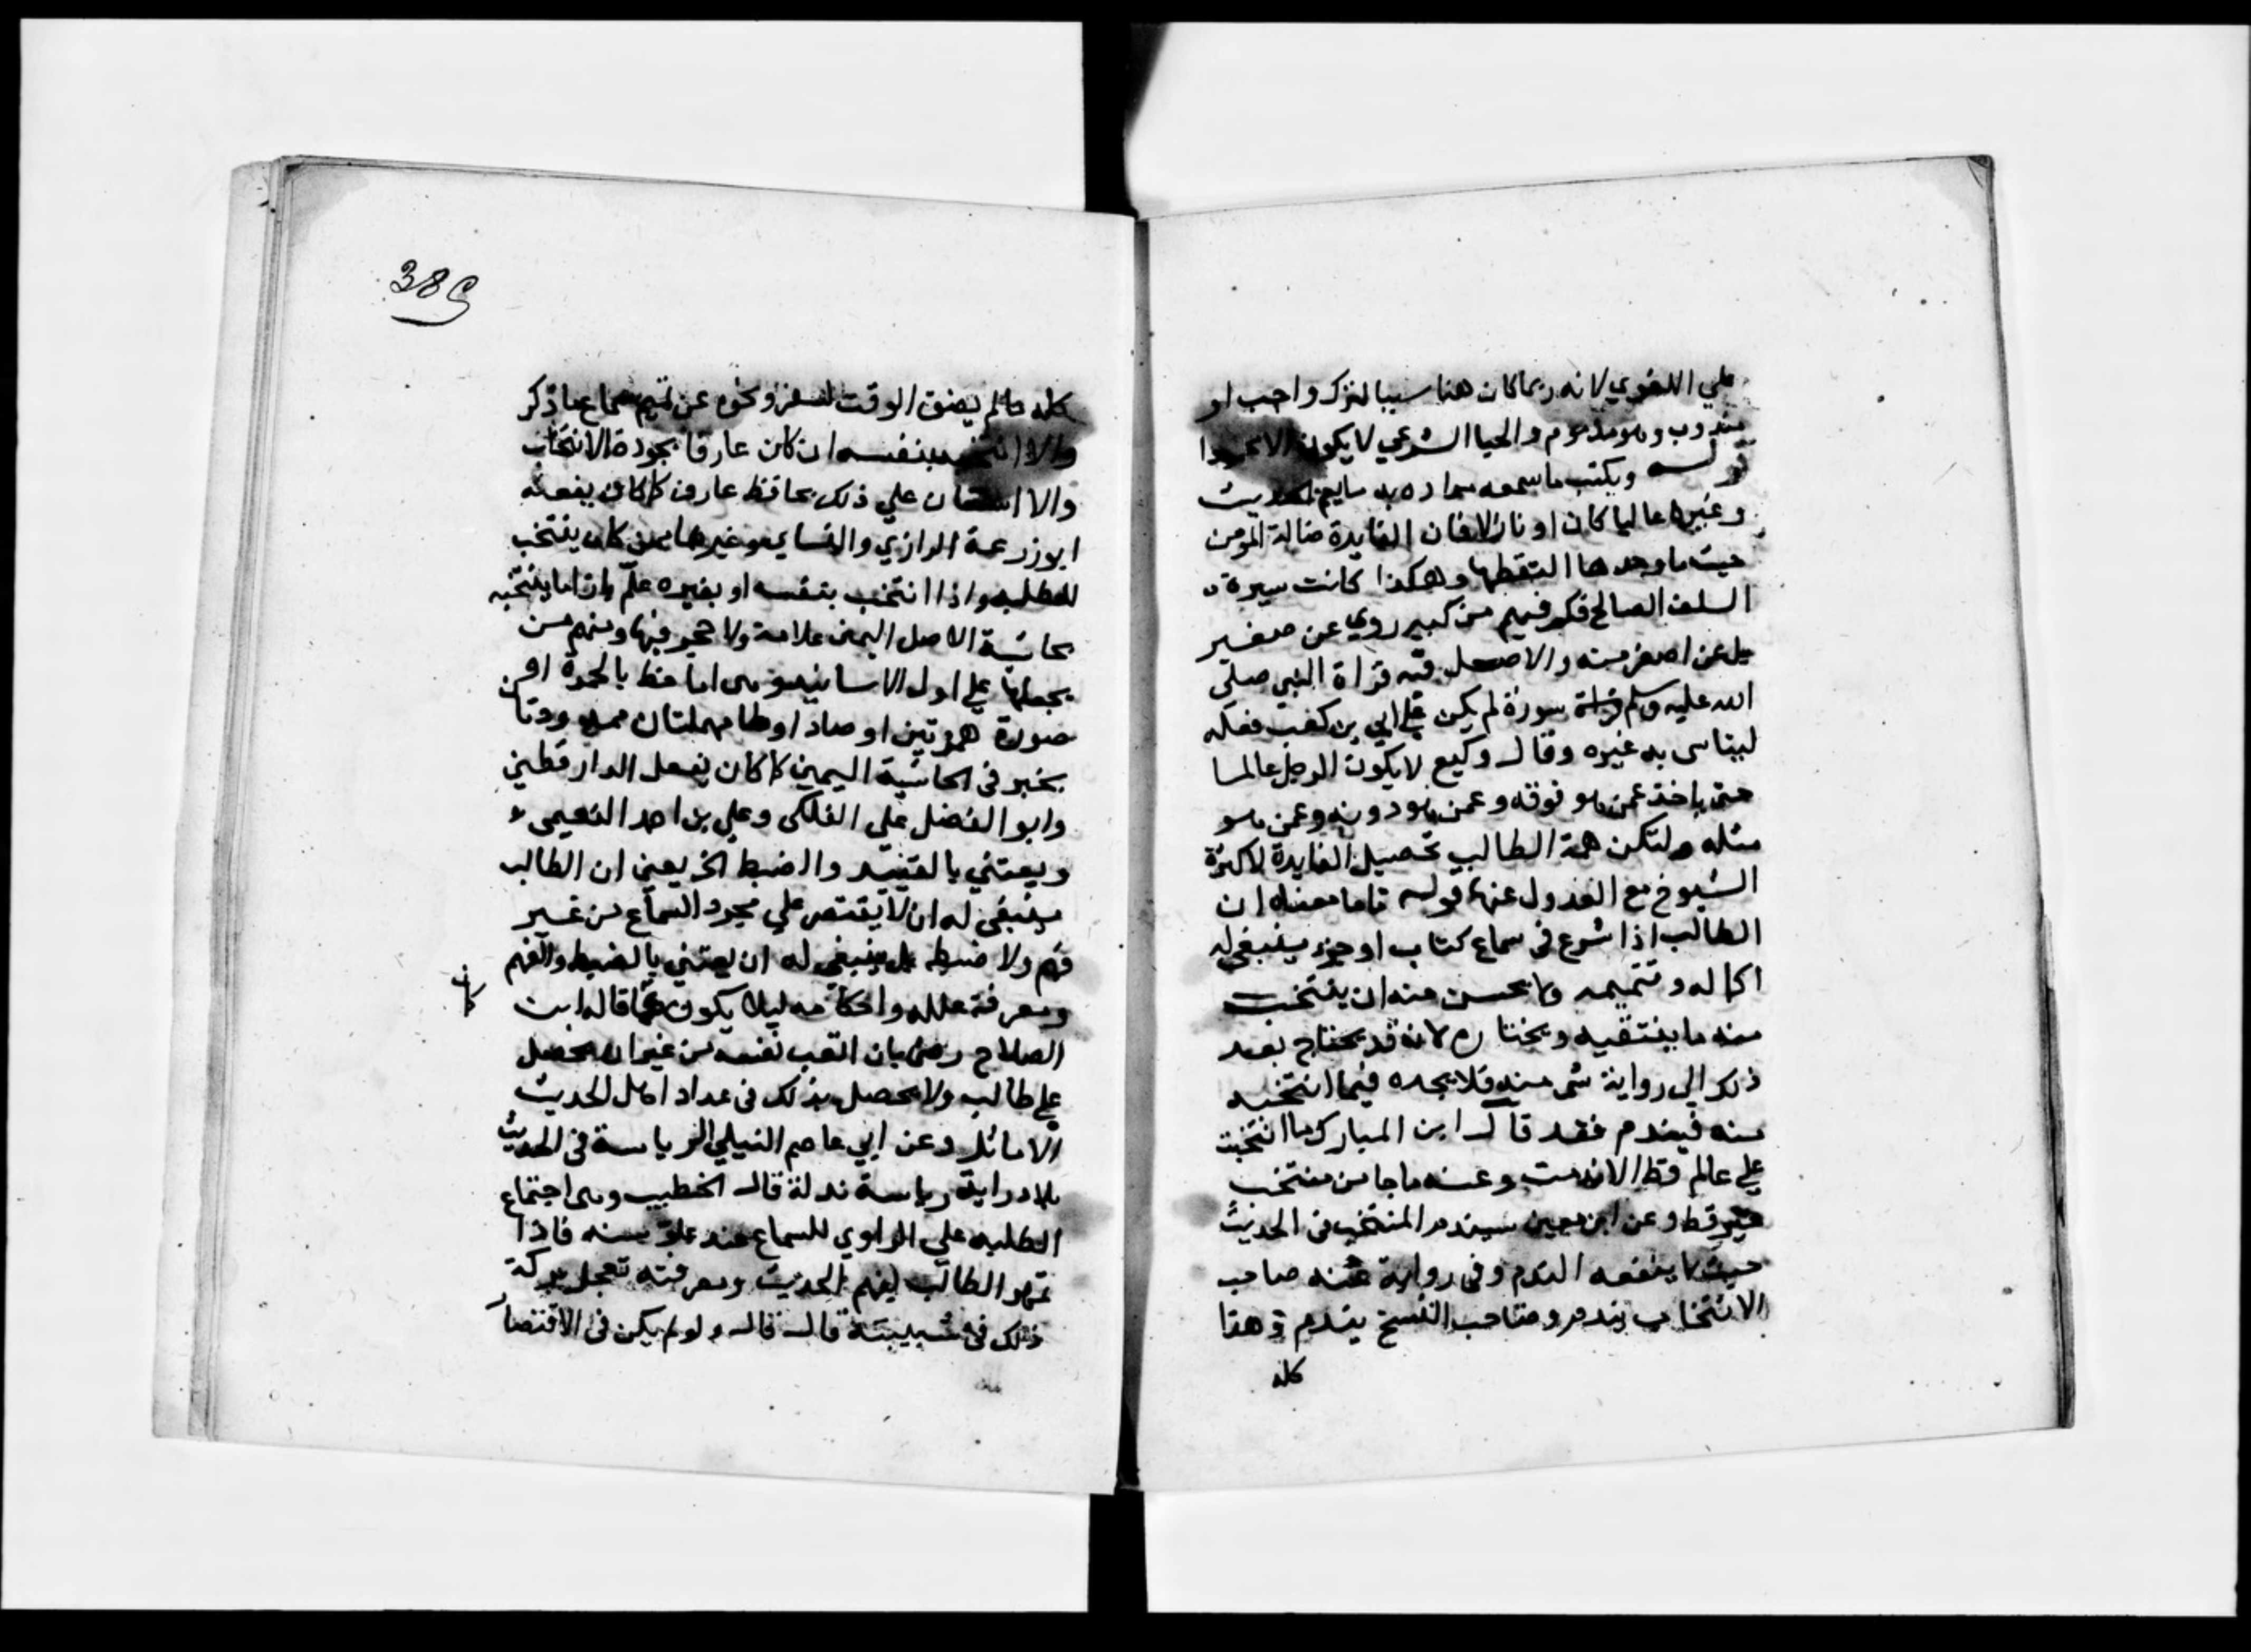 علي اللغوي لانه ربما كان هنا سببا لترك واجب او
مندوب وهو مذموم والحيا الشرعي لا يكون الا محمودا
قولــه ويكتب ما سمعه مراده به سايم الحديث
وغيره عاليا كان او نازلا فان الفايدة ضالة المومن
حيث ما وجدها التقطها وهكذا كانت سيرة
السلف الصالح فكم فيهم من كبير روي عن صغير
بل عن اصغر منه والاصل فيه قراة النبي صلي
الله عليه وسلم قراة سورة لم يكن علي ابي بن كعب فعله
ليتاسى به غيره وقال وكيع لا يكون الرجل عالما
حتى ياخذ عمن هو فوقه وعمن هو دونه وعمن هو
مثله ولتكن همة الطالب تحصيل الفايدة لا كثرة
الشيوخ مع العدول عنها قوله تاما معناه ان
الطالب اذا شرع في سماع كتاب او جزء ينبغي له
اكماله وتتميمه ولا يحسن منه ان ينتخب
منه ما ينتقيه ويختاره لانه قد يحتاج بعد
ذلك الي رواية شى منه فلا يجده فيما انتخبه
منه فيندم فقد قال ابن المبارك ما انتخبت
علي عالم قط الا ندمت وعنه ما جا من منتخب
خير قط وعن ابن معين سيندم المنتخب في الحديث
حيث لا ينفعه الندم وفي رواية عنه صاحب
الانتخاب يندم وصاحب النسخ لا يندم وهذا
كله
389
كله ما لم يضق الوقت لسفر ونحوه عن تتميم سماع ما ذكر
والا انتخب بنفسه ان كان عارفا بجودة الانتخاب
والا استعان علي ذلك بحافظ عارف كما كان يفعله
ابو زرعة الرازي والنساي وغيرهما ممن كان ينتخب
للطلبة واذا انتخب بنفسه او بغيره علم بازا ما ينتخبه
بحاشية الاصل اليمنى علامة ولا حجر فيها ومنهم من
يجعلها علي اول الاسانيد وهى اما خط بالحمرة او
صورة همزتين او صاد او طا مهملتان ممدودتان
بحبر في الحاشية اليمين كما كان يفعل الدارقطني
وابو الفضل علي الفلكى وعلي بن احمد النعيمي
ويعتني بالتقييد والضبط الخ يعني ان الطالب
ينبغي له ان لا يقتصر علي مجرد السماع من غير
فهم ولا ضبط بل ينبغي له ان يعتني بالضبط والفهم
ومعرفة علله واحكامه ليلا يكون كما قال ابن
الصلاح رضى بان اتعب نفسه من غير ان يحصل
علي طالب ولا يحصل بذلك في عداد اهل الحديث
الاماثل وعن ابي عاصم النبيل الرياسة في الحديث
بلا دراية رياسة نذلة قال الخطيب وهى اجتماع
الطلبه علي الراوي للسماع عند علو سنه فاذا
تمهر الطالب بفهم الحديث ومعرفته تعجل بركة
ذلك في شبيبته قال قال ولو لم يكن في الاقتصار